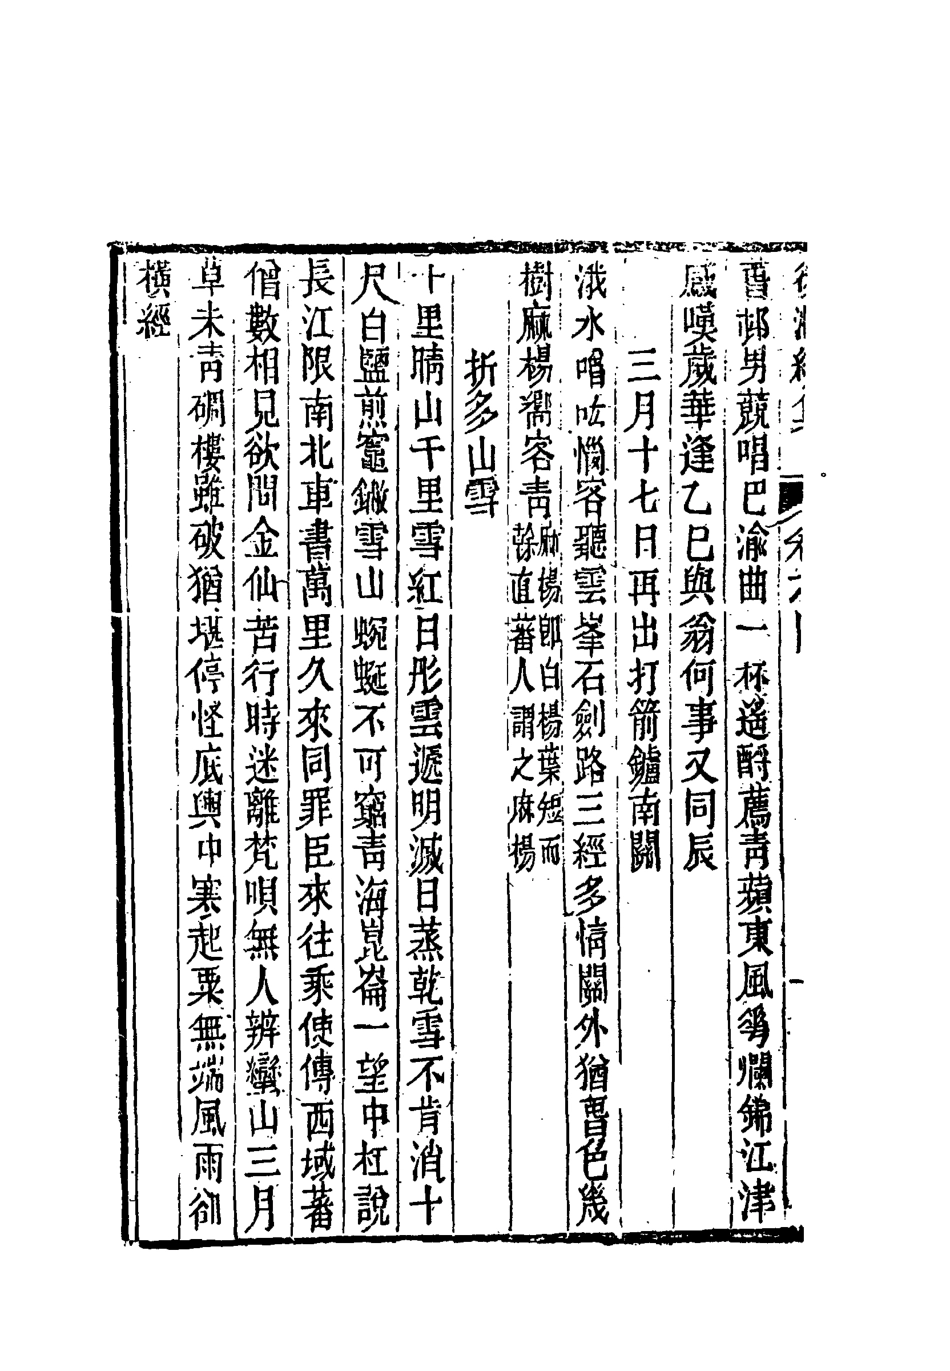 舂邨男競唱巴渝曲一杯遙酹薦青蘋東風爛錦江津
感嘆歲華逢乙巳與翁何事又同辰
三月十七日再出打箭鑪南關
涐水唱呟惱客聽雲峯石劍路三經多情關外猶舂色幾
樹麻楊嚮客青麻楊卽白楊葉短而
榦直蕃人謂之麻楊
折多山雪
十里晴山千里雪紅日彤雲遞明滅日蒸乾雪不肯消十
尺白鹽煎竈鐵雪山蜿蜒不可窮青海崑崙一望中枉說
長江限南北車書萬里久來同罪臣來往乘使傳西域蕃
僧數相見欲問金仙苦行時迷離梵唄無人辨蠻山三月
草未青碉樓雖破猶堪停怪底輿中寒起粟無端風雨御
橫經